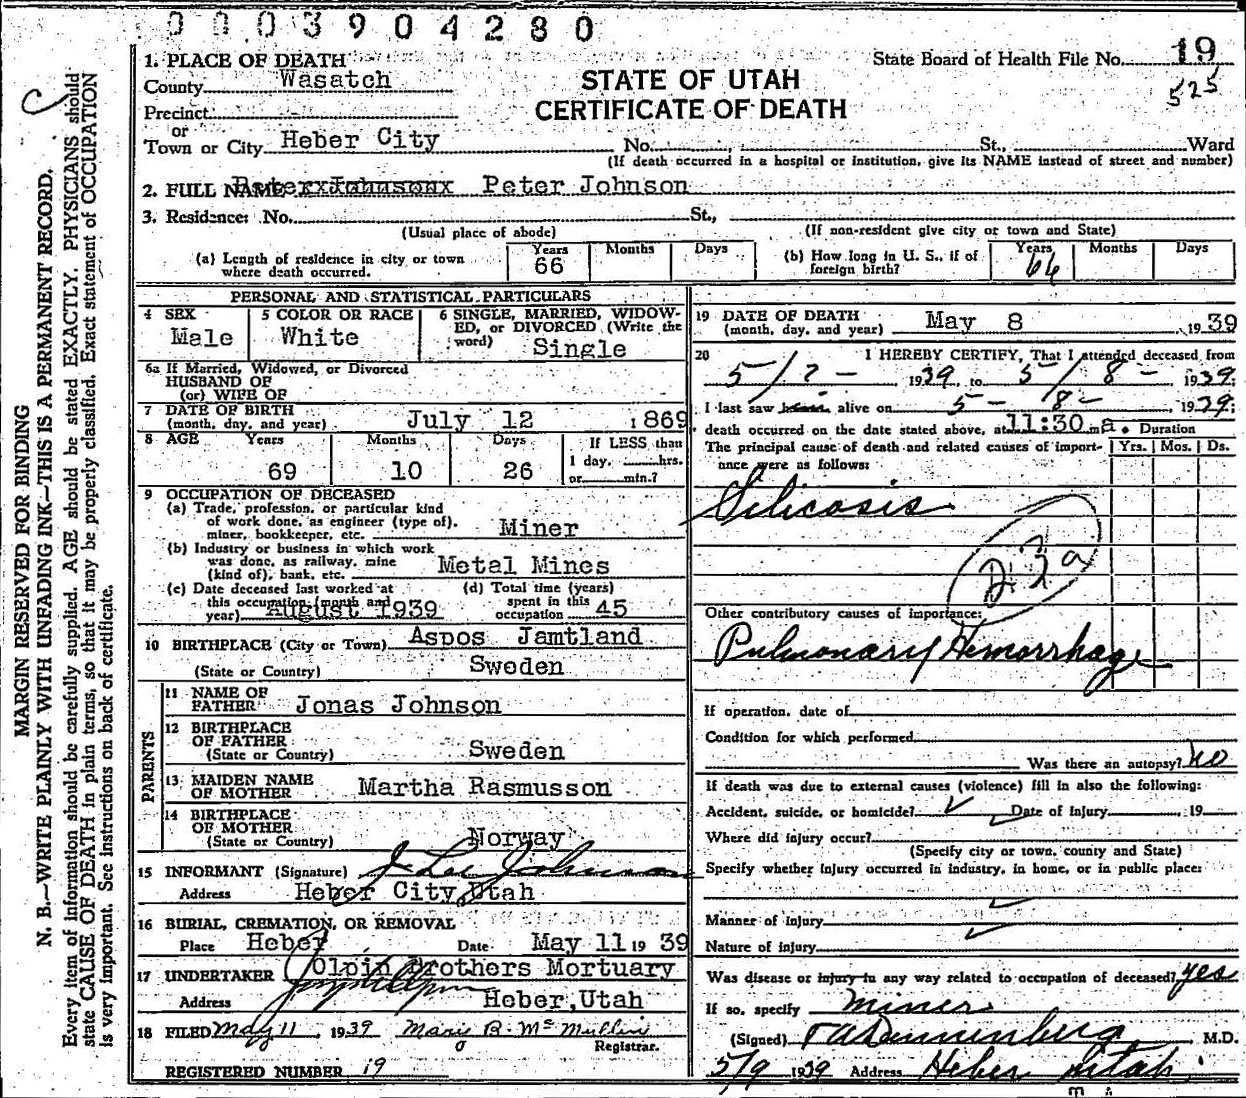 0003904280
State Board of Health File No. 19
525
STATE OF UTAH
CERTIFICATE OF DEATH
1. PLACE OF DEATH
County Wasatch
Precinct
or
Town or City Heber City No. St., Ward
(If death occurred in a hospital or institution, give its NAME instead of street and number)
2. FULL NAME Peter Johnson
3. Residence: No. St.,
(Usual place of abode) (If non-resident give city or town and State)
(a) Length of residence in city or town where death occurred. Years 66 Months Days
(b) How long in U. S., if of foreign birth? Years 66 Months Days
PERSONAL AND STATISTICAL PARTICULARS
4 SEX Male
5 COLOR OR RACE White
6 SINGLE, MARRIED, WIDOWED, or DIVORCED (Write the word) Single
6a If Married, Widowed, or Divorced
HUSBAND OF
(or) WIFE OF
7 DATE OF BIRTH
(month, day, and year) July 12 1869
8 AGE Years 69 Months 10 Days 26 If LESS than 1 day, hrs. or min.?
9 OCCUPATION OF DECEASED
(a) Trade, profession, or particular kind
of work done, as engineer (type of),
miner, bookkeeper, etc. Miner
(b) Industry or business in which work
was done, as railway, mine
(kind of), bank, etc. Metal Mines
(c) Date deceased last worked at
this occupation (month and
year) August 1939
(d) Total time (years)
spent in this
occupation 45
10 BIRTHPLACE (City or Town) Aspos Jamtland
(State or Country) Sweden
PARENTS
11 NAME OF
FATHER Jonas Johnson
12 BIRTHPLACE
OF FATHER
(State or Country) Sweden
13 MAIDEN NAME
OF MOTHER Martha Rasmusson
14 BIRTHPLACE
OF MOTHER
(State or Country) Norway
15 INFORMANT (Signature) J Lee Johnson
Address Heber City, Utah
16 BURIAL, CREMATION, OR REMOVAL
Place Heber Date May 11 1939
17 UNDERTAKER Olpin Brothers Mortuary
Address Heber, Utah
18 FILED May 11, 1939 Marie B. McMullin
Registrar.
REGISTERED NUMBER 19
19 DATE OF DEATH
(month, day, and year) May 8, 1939
20 I HEREBY CERTIFY, That I attended deceased from
5/7- 1939, to 5/8- 1939;
I last saw him alive on 5-8-, 1939;
death occurred on the date stated above, at 11:30 a m. Duration
The principal cause of death and related causes of importance were as follows: Yrs. Mos. Ds.
Silicosis
Other contributory causes of importance:
Pulmonary Hemorrhage
If operation, date of
Condition for which performed
Was there an autopsy? no
If death was due to external causes (violence) fill in also the following:
Accident, suicide, or homicide? Date of injury, 19
Where did injury occur?
(Specify city or town, county and State)
Specify whether injury occurred in industry, in home, or in public place:
Manner of injury
Nature of injury
Was disease or injury in any way related to occupation of deceased? yes
If so, specify Miner
(Signed) Dannenberg, M.D.
5/9 1939 Address Heber Utah
MARGIN RESERVED FOR BINDING
N. B.—WRITE PLAINLY WITH UNFADING INK—THIS IS A PERMANENT RECORD.
Every item of information should be carefully supplied. AGE should be stated EXACTLY. PHYSICIANS should
state CAUSE OF DEATH in plain terms, so that it may be properly classified. Exact statement of OCCUPATION
is very important. See instructions on back of certificate.